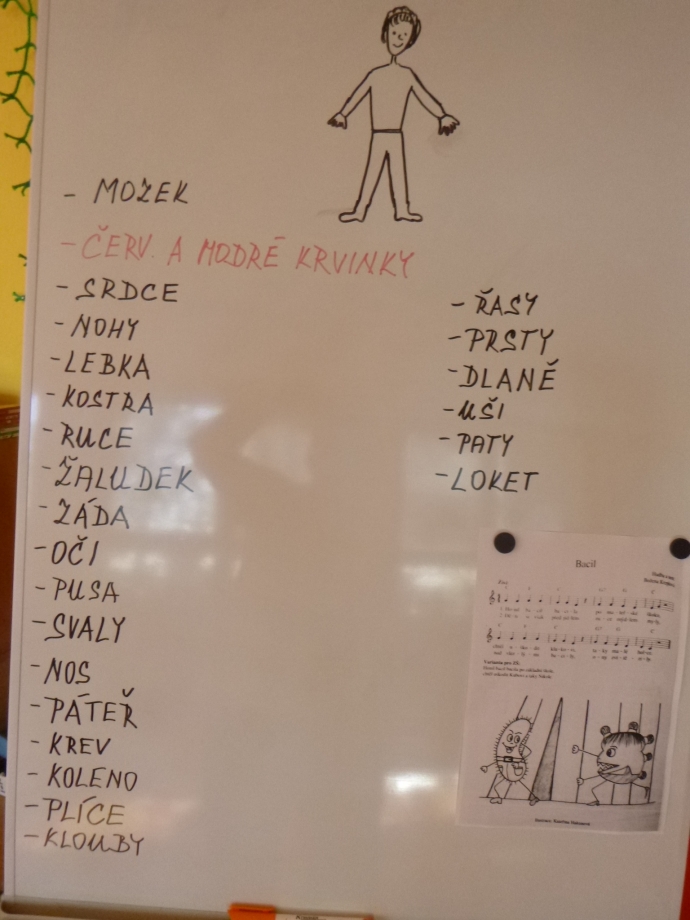 - MOZEK
- ČERV. A MODRÉ KRVINKY
- SRDCE
- NOHY
- LEBKA
- KOSTRA
- RUCE
- ŽALUDEK
- ZÁDA
- OČI
- PUSA
- SVALY
- NOS
- PÁTEŘ
- KREV
- KOLENO
- PLÍCE
- KLOUBY
- ŘASY
- PRSTY
- DLANĚ
- UŠI
- PATY
- LOKET
Bacil